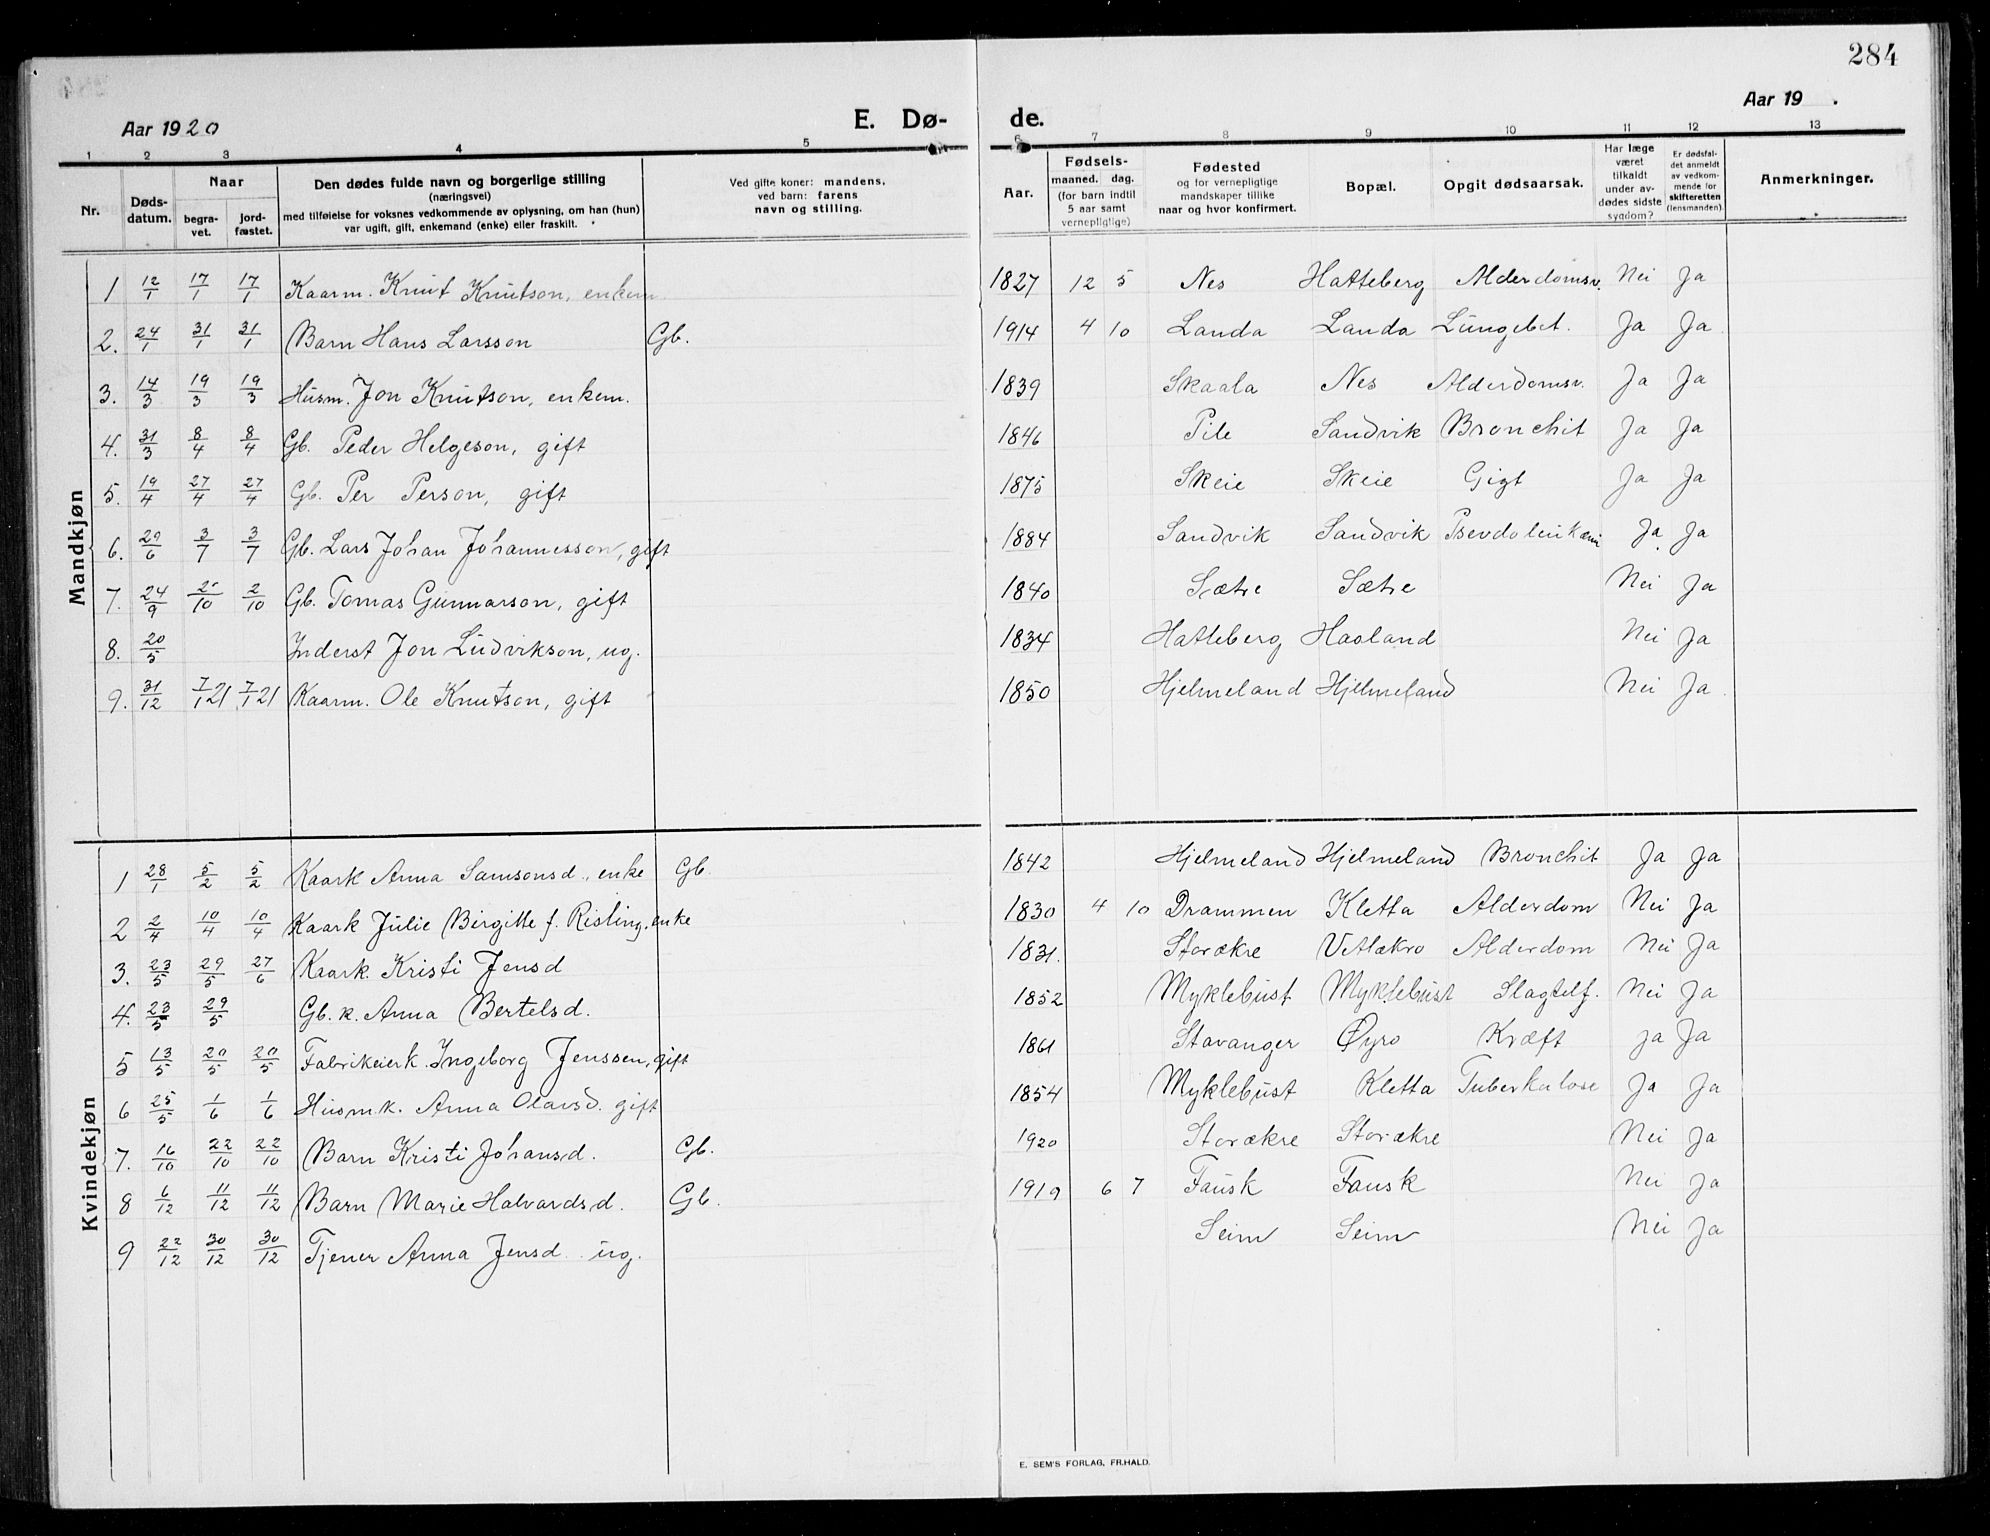 284
Aar 1920 E. Dø- de. Aar 19 .
1 2 3 4 5 6 7 8 9 10 11 12 13
Nr. Døds-datum. Naar begra-vet. jord-fæstet. Den dødes fulde navn og borgerlige stilling (næringsvei) med tilføielse for voksnes vedkommende av oplysning, om han (hun) var ugift, gift, enkemand (enke) eller fraskilt. Ved gifte koner: mandens, ved barn: farens navn og stilling. Aar. Fødsels- maaned. dag. (for barn indtil 5 aar samt vernepligtige) Fødested og for vernepligtige mandskaper tillike naar og hvor konfirmert. Bopæl. Opgit dødsaarsak. Har læge været tilkaldt under av-dødes sidste sygdom? Er dødsfal-det anmeldt av vedkom-mende for skifteretten (lensmanden). Anmerkninger.
Mandkjøn
1 12/1 17/1 17/1 Kaarm. Knut Knutson, enkem 1827 12 5 Nes Hatteberg Alderdomsv. Nei Ja
2. 24/1 31/1 31/1 Barn Hans Larsson Gb. 1914 4 10 Landa Landa Lungebet. Ja Ja
3. 14/3 19/3 19/3 Husm. Jon Knutson, enkem. 1839 Skaala Nes Alderdomsv. Ja Ja
4. 31/3 8/4 8/4 Gb. Peder Helgeson, gift 1846 Pile Sandvik Bronchit Ja Ja
5. 19/4 27/4 27/4 Gb. Per Person, gift 1875 Skeie Skeie Gigt Ja Ja
6. 29/6 3/7 3/7 Gb. Lars Johan Johannesson, gift 1884 Sandvik Sandvik Psevdoleukæmi Ja Ja
7. 24/9 2/10 2/10 Gb. Tomas Gunnarson, gift 1840 Sætre Sætre Nei Ja
8. 20/5 Inderst Jon Ludvikson, ug. 1834 Hatteberg Haaland Nei Ja
9. 31/12 7/1 21 7/1 21 Kaarm. Ole Knutson, gift 1850 Hjelmeland Hjelmeland Nei Ja
Kvindekjøn
1 28/1 5/2 5/2 Kaark Anna Samsonsd., enke Gb. 1842 Hjelmeland Hjelmeland Bronchit Ja Ja
2 2/4 10/4 10/4 Kaark Julie Birgitte f. Risting, enke 1830 4 10 Drammen Kletta Alderdom Nei Ja
3. 23/5 29/5 27/6 Kaark. Kristi Jensd 1831. Storækre Vetlækro Alderdom Nei Ja
4. 23/5 29/5 Gb. k. Anna Bertelsd. 1852 Myklebust Myklebust Slagtelf. Nei Ja
5 13/5 20/5 20/5 Fabrikeierk. Ingeborg Jenssen, gift 1861 Stavanger Øyro Kræft Ja Ja
6 25/5 1/6 1/6 Husmk. Anna Olavsd. gift 1854 Myklebust Kletta Tuberkulose Ja Ja
7. 16/10 22/10 22/10 Barn Kristi Johansd. Gb. 1920 Storækre Storækre Nei Ja
8 6/12 11/12 11/12 Barn Marie Halvardsd. Gb. 1919 6 7 Fausk Fausk Nei Ja
9 22/12 30/12 30/12 Tjener Anna Jensd. ug. Seim Seim Nei Ja
E. SEM'S FORLAG, FR.HALD.